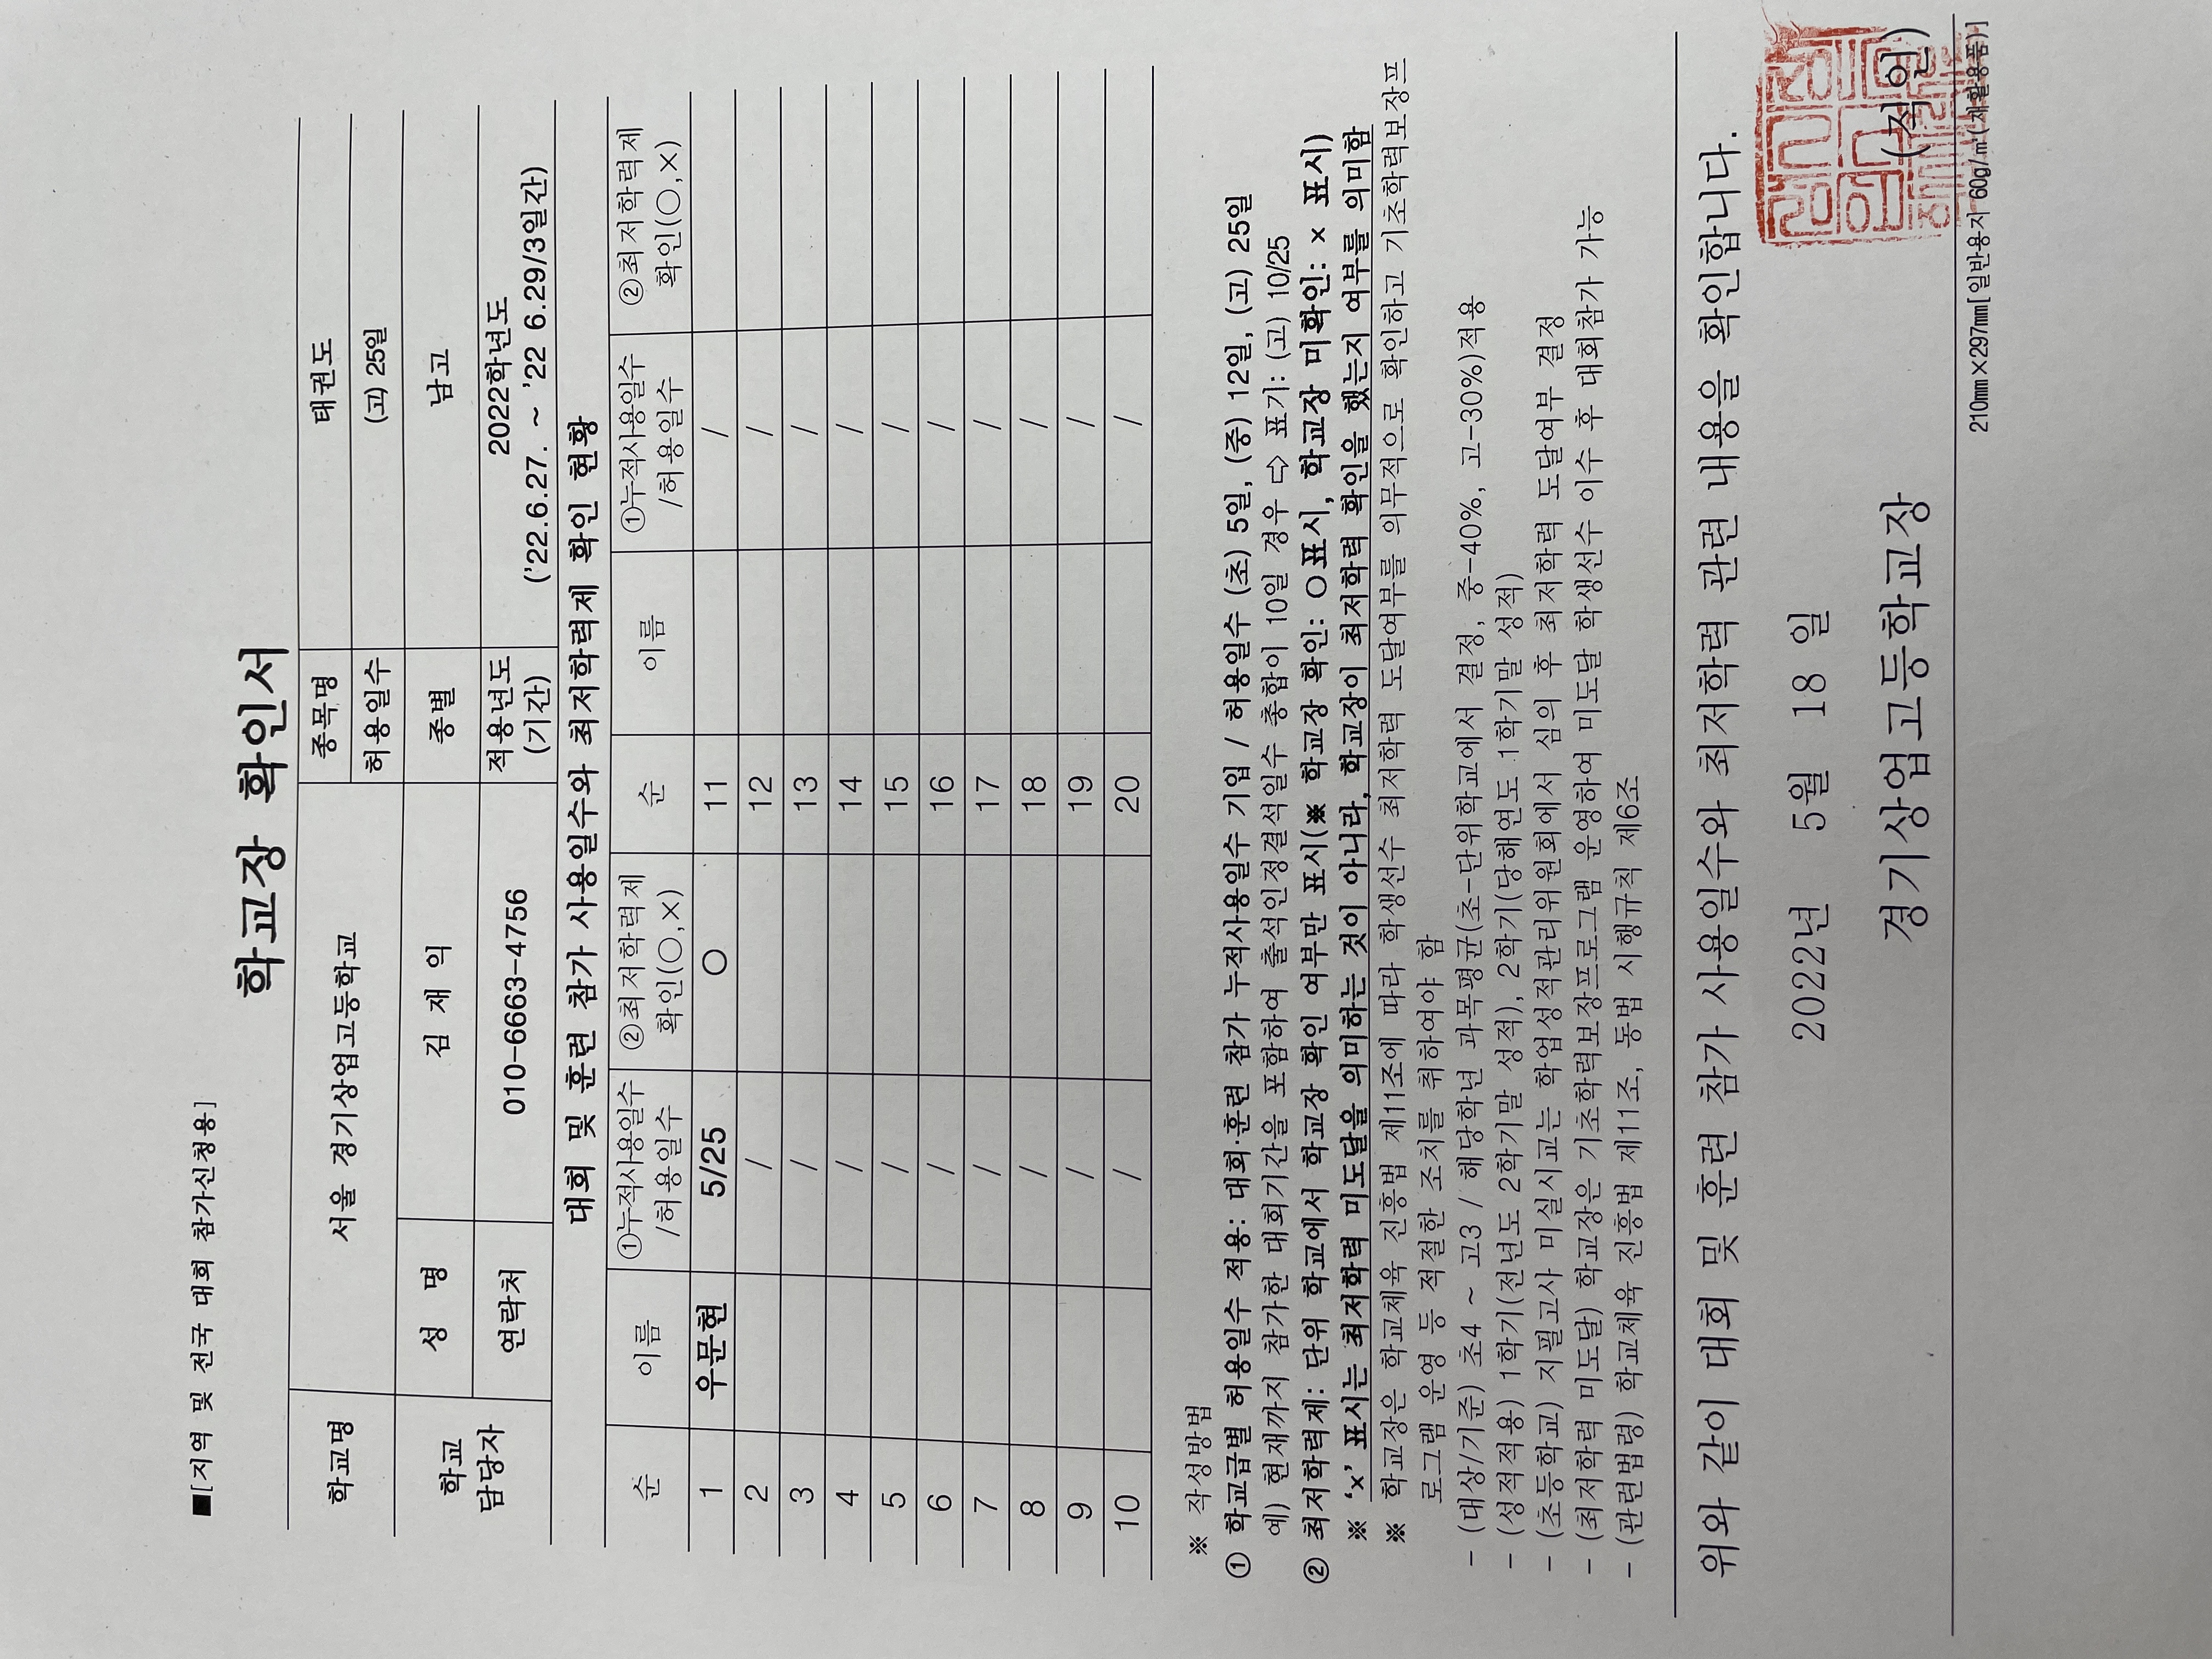 ■[지역 및 전국 대회 참가신청용]
학교장 확인서
학교명 서울 경기상업고등학교 종목명 태권도
허용일수 (고) 25일
학교 담당자 성 명 김 재 익 종별 남고
연락처 010-6663-4756 적용년도 (기간) 2022학년도 ('22.6.27. ~ '22 6.29/3일간)
대회 및 훈련 참가 사용일수와 최저학력제 확인 현황
순 이름 ①누적사용일수 /허용일수 ②최저학력제 확인(○,×) 순 이름 ①누적사용일수 /허용일수 ②최저학력제 확인(○,×)
1 우문현 5/25 ○ 11 /
2 / 12 /
3 / 13 /
4 / 14 /
5 / 15 /
6 / 16 /
7 / 17 /
8 / 18 /
9 / 19 /
10 / 20 /
※ 작성방법
① 학교급별 허용일수 적용: 대회·훈련 참가 누적사용일수 기입 / 허용일수 (초) 5일, (중) 12일, (고) 25일
예) 현재까지 참가한 대회기간을 포함하여 출석인정결석일수 총합이 10일 경우 ⇨ 표기: (고) 10/25
② 최저학력제: 단위 학교에서 학교장 확인 여부만 표시(※ 학교장 확인: ○표시, 학교장 미확인: × 표시)
※ '×' 표시는 최저학력 미도달을 의미하는 것이 아니라, 학교장이 최저학력 확인을 했는지 여부를 의미함
※ 학교장은 학교체육 진흥법 제11조에 따라 학생선수 최저학력 도달여부를 의무적으로 확인하고 기초학력보장프
로그램 운영 등 적절한 조치를 취하여야 함
- (대상/기준) 초4 ~ 고3 / 해당학년 과목평균(초-단위학교에서 결정, 중-40%, 고-30%)적용
- (성적적용) 1학기(전년도 2학기말 성적), 2학기(당해연도 1학기말 성적)
- (초등학교) 지필고사 미실시교는 학업성적관리위원회에서 심의 후 최저학력 도달여부 결정
- (최저학력 미도달) 학교장은 기초학력보장프로그램 운영하여 미도달 학생선수 이수 후 대회참가 가능
- (관련법령) 학교체육 진흥법 제11조, 동법 시행규칙 제6조
위와 같이 대회 및 훈련 참가 사용일수와 최저학력 관련 내용을 확인합니다.
2022년 5월 18 일
경기상업고등학교장 (직인)
210㎜×297㎜[일반용지 60g/㎡(재활용품)]